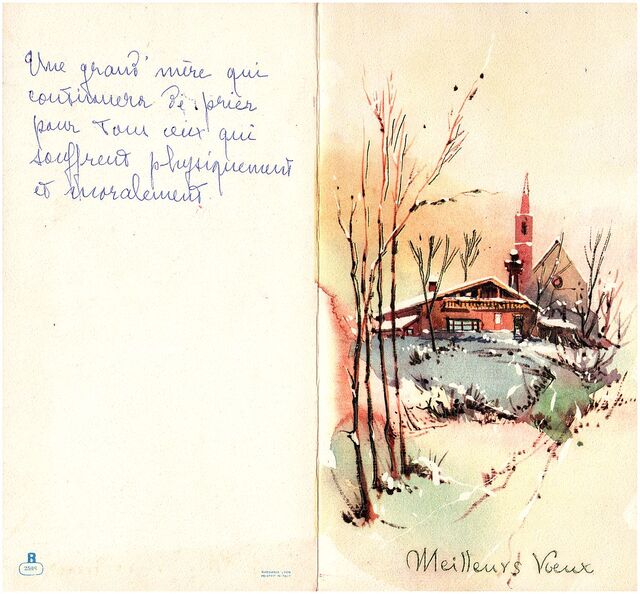 Une grand' mère qui
continuera de prier
pour tous ceux qui
souffrent physiquement
et moralement
Meilleurs Vœux
R